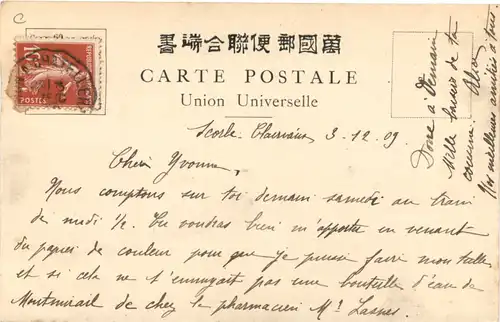 書端合聯便郵國萬
CARTE POSTALE
Union Universelle
Scorbé Clairvaux 3-12-09
Chère Yvonne,
Nous comptons sur toi demain samedi au train
de midi 1/2. Tu voudras bien m'apporter en venant
du papier de couleur pour que je puisse faire mon tulle
et si cela ne t'ennuyait pas une bouteille d'eau de
Montmirail de chez le pharmacien Mr Lasnes.
Donc à demain
Mille baisers de ta
cousine. Alice
Nos meilleures amitiés à tous.
POSTES